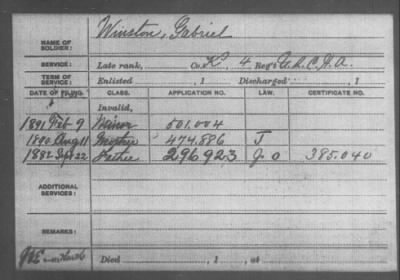 NAME OF SOLDIER: Winston, Gabriel
SERVICE: Late rank, Co. K 4 Reg't U.S.C.H.A.
TERM OF SERVICE: Enlisted , 1 Discharged , 1
DATE OF FILING. CLASS. APPLICATION NO. LAW. CERTIFICATE NO.
Invalid,
1891 Feb 9 Minor 501.004
1890 Aug 11 Mother 474.886 J
1882 Sept 22 Father 296923 G.O 385.040
ADDITIONAL SERVICES:
REMARKS:
Died , 1 , at